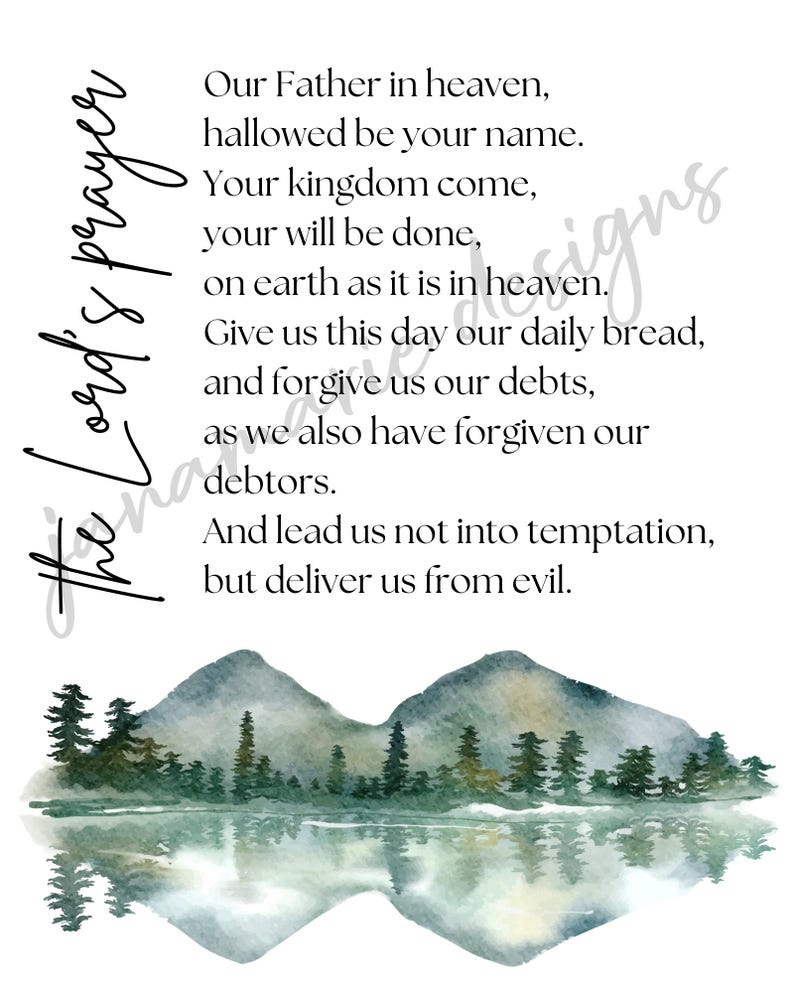 the Lord's prayer
Our Father in heaven,
hallowed be your name.
Your kingdom come,
your will be done,
on earth as it is in heaven.
Give us this day our daily bread,
and forgive us our debts,
as we also have forgiven our
debtors.
And lead us not into temptation,
but deliver us from evil.
janamarie designs